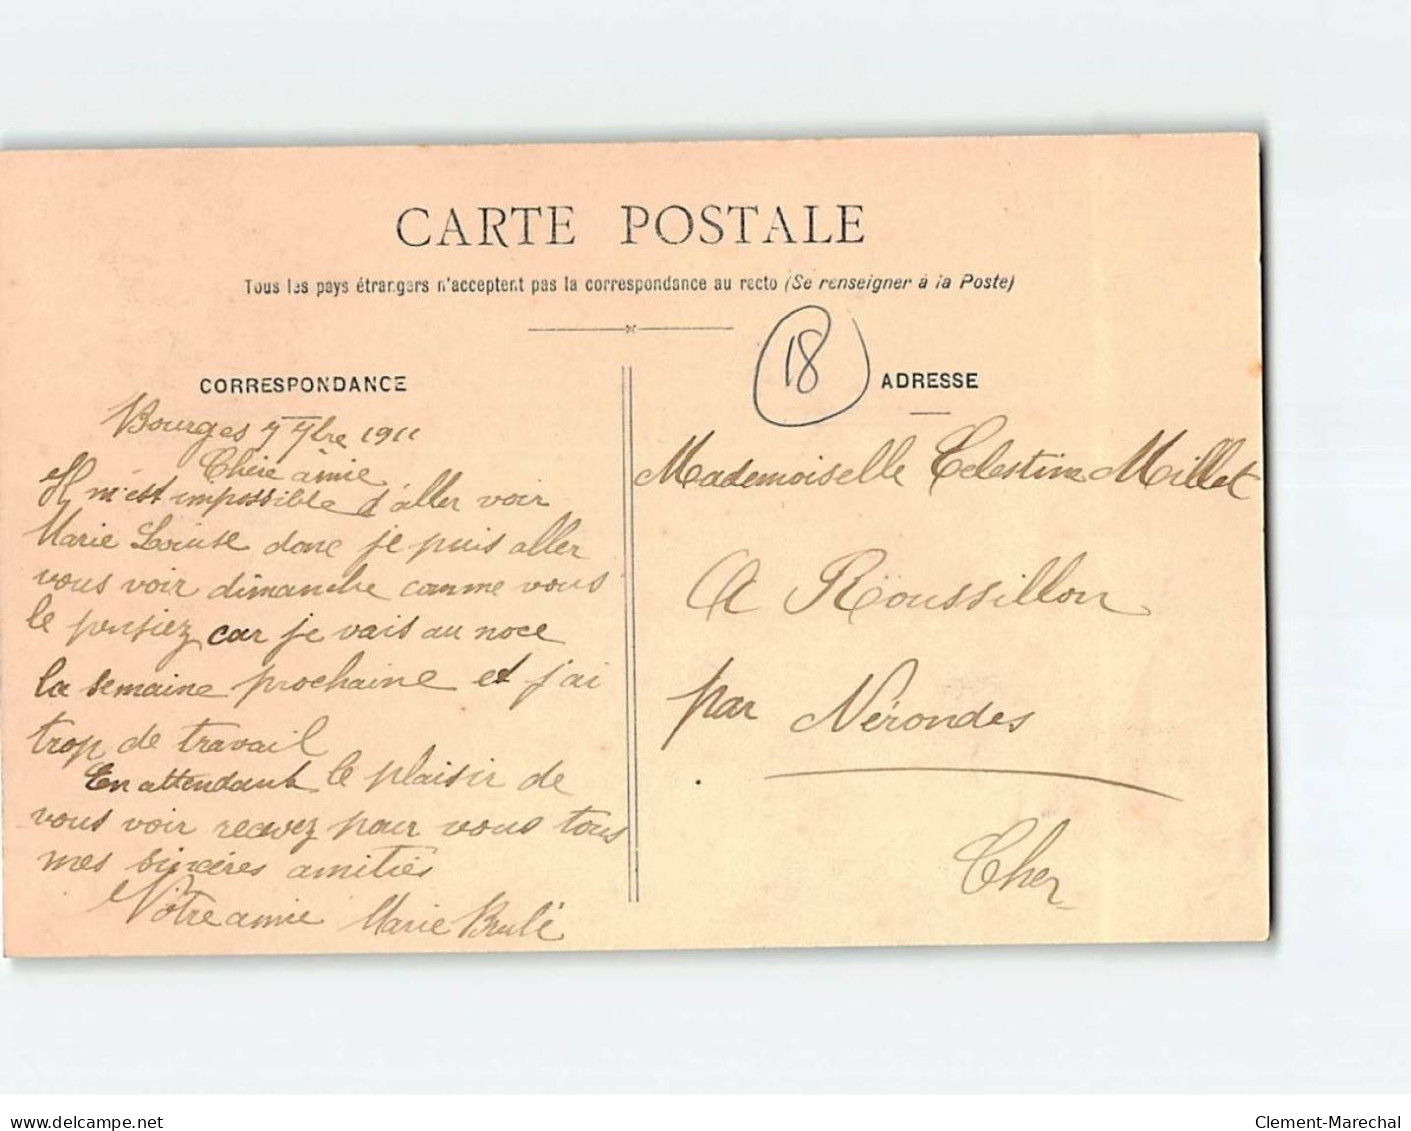 CARTE POSTALE
Tous les pays étrangers n'acceptent pas la correspondance au recto (Se renseigner à la Poste)
18
CORRESPONDANCE
Bourges 7 7bre 1911
Chère amie
Il m'est impossible d'aller voir
Marie Louise donc je puis aller
vous voir dimanche comme vous
le pensiez car je vais au noce
la semaine prochaine et j'ai
trop de travail
En attendant le plaisir de
vous voir recevez pour vous tous
mes sincères amitiés
Votre amie Marie Brulé
ADRESSE
Mademoiselle Celestine Millet
A Roussillon
par Nérondes
Cher
Delcampe.net
Clement-Marechal